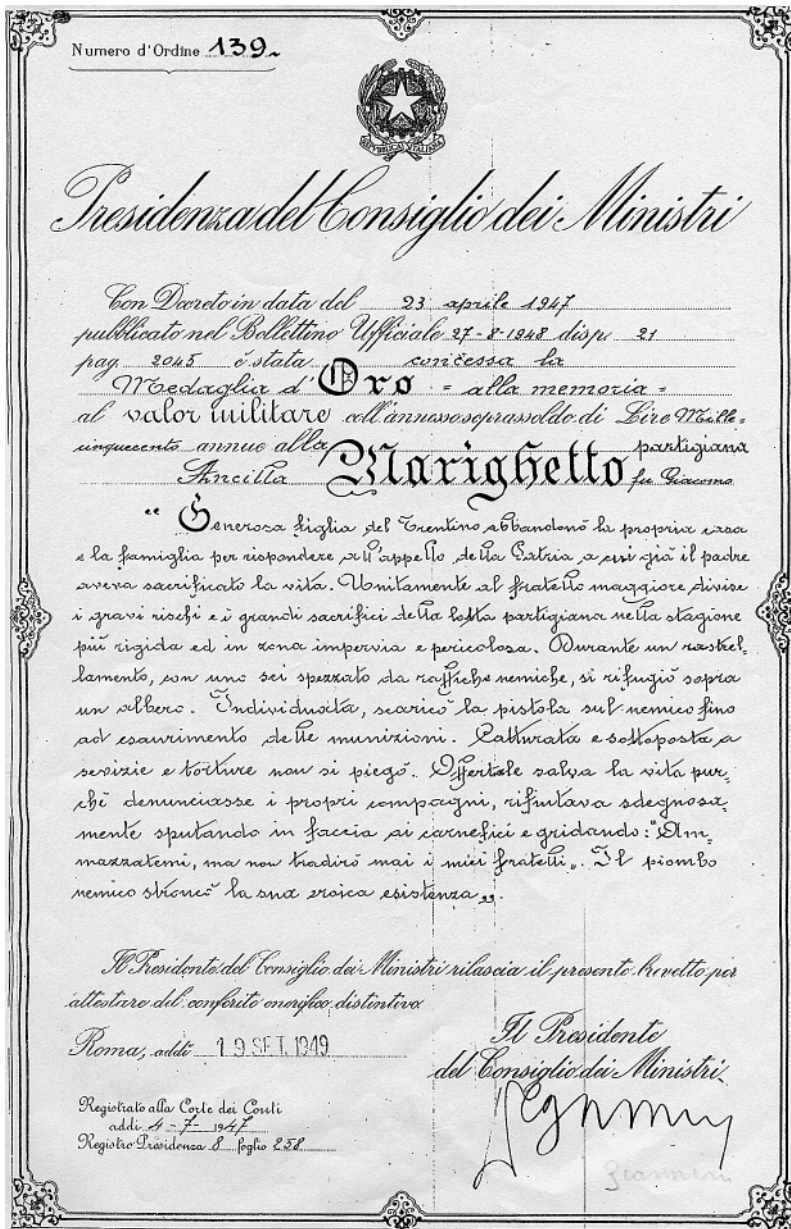 Numero d'Ordine 139.
REPVBBLICA ITALIANA
Presidenza del Consiglio dei Ministri
Con Decreto in data del 23 aprile 1947
pubblicato nel Bollettino Ufficiale 27-8-1948 disp. 21
pag. 2045 è stata concessa la
Medaglia d'Oro = alla memoria =
al valor militare coll'annesso soprassoldo di Lire Mille=
cinquecento annue alla partigiana
Ancilla Marighetto fu Giacomo
"Generosa figlia del Trentino abbandonò la propria casa
e la famiglia per rispondere all'appello della Patria a cui già il padre
aveva sacrificato la vita. Unitamente al fratello maggiore divise
i gravi rischi e i grandi sacrifici della lotta partigiana nella stagione
più rigida ed in zona impervia e pericolosa. Durante un rastrel-
lamento, con uno sci spezzato da raffiche nemiche, si rifugiò sopra
un albero. Individuata, scaricò la pistola sul nemico fino
ad esaurimento delle munizioni. Catturata e sottoposta a
sevizie e torture non si piegò. Offertale salva la vita pur-
chè denunciasse i propri compagni, rifiutava sdegnosa-
mente sputando in faccia ai carnefici e gridando: "Am-
mazzatemi, ma non tradirò mai i miei fratelli". Il piombo
nemico stroncò la sua eroica esistenza".
Il Presidente del Consiglio dei Ministri rilascia il presente brevetto per
attestare del conferito onorifico distintivo
Roma, addì 19 SET. 1949
Il Presidente
del Consiglio dei Ministri
Registrato alla Corte dei Conti
addì 4-7-1947
Registro Presidenza 8 foglio 258
Giannini